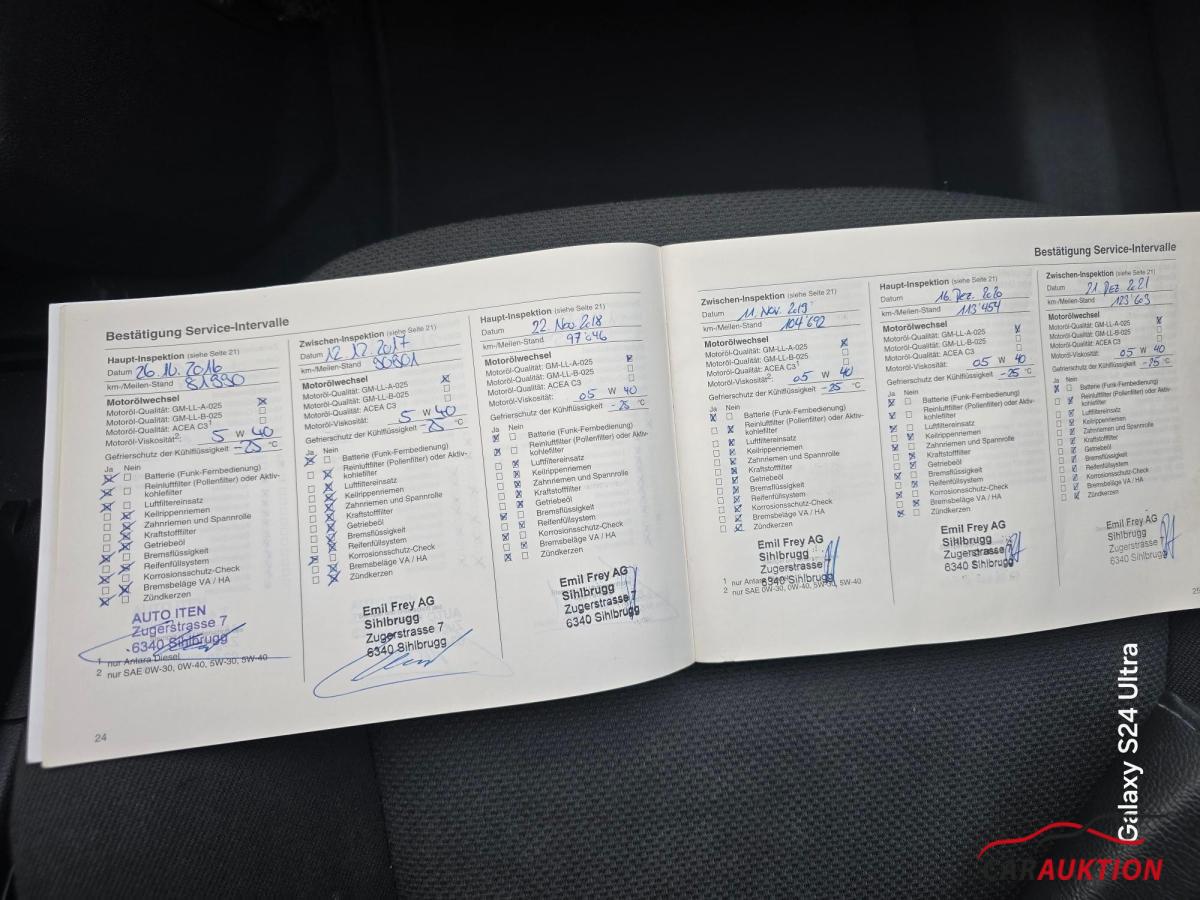 Bestätigung Service-Intervalle
Haupt-Inspektion (siehe Seite 21)
Datum 26.10.2016
km-/Meilen-Stand 81990
Motorölwechsel
Motoröl-Qualität: GM-LL-A-025
Motoröl-Qualität: GM-LL-B-025
Motoröl-Qualität: ACEA C3¹
Motoröl-Viskosität²: 5 W 40
Gefrierschutz der Kühlflüssigkeit -25 °C
Ja Nein
Batterie (Funk-Fernbedienung)
Reinluftfilter (Pollenfilter) oder Aktiv-
kohlefilter
Luftfiltereinsatz
Keilrippenriemen
Zahnriemen und Spannrolle
Kraftstofffilter
Getriebeöl
Bremsflüssigkeit
Reifenfüllsystem
Korrosionsschutz-Check
Bremsbeläge VA / HA
Zündkerzen
AUTO ITEN
Zugerstrasse 7
6340 Sihlbrugg
1 nur Antara Diesel
2 nur SAE 0W-30, 0W-40, 5W-30, 5W-40
24
Zwischen-Inspektion (siehe Seite 21)
Datum 12.12.2017
km-/Meilen-Stand 90801
Motorölwechsel
Motoröl-Qualität: GM-LL-A-025
Motoröl-Qualität: GM-LL-B-025
Motoröl-Qualität: ACEA C3
Motoröl-Viskosität: 5 W 40
Gefrierschutz der Kühlflüssigkeit -25 °C
Ja Nein
Batterie (Funk-Fernbedienung)
Reinluftfilter (Pollenfilter) oder Aktiv-
kohlefilter
Luftfiltereinsatz
Keilrippenriemen
Zahnriemen und Spannrolle
Kraftstofffilter
Getriebeöl
Bremsflüssigkeit
Reifenfüllsystem
Korrosionsschutz-Check
Bremsbeläge VA / HA
Zündkerzen
Emil Frey AG
Sihlbrugg
Zugerstrasse 7
6340 Sihlbrugg
Haupt-Inspektion (siehe Seite 21)
Datum 22. Nov. 2018
km-/Meilen-Stand 97646
Motorölwechsel
Motoröl-Qualität: GM-LL-A-025
Motoröl-Qualität: GM-LL-B-025
Motoröl-Qualität: ACEA C3
Motoröl-Viskosität: 05 W 40
Gefrierschutz der Kühlflüssigkeit -25 °C
Ja Nein
Batterie (Funk-Fernbedienung)
Reinluftfilter (Pollenfilter) oder Aktiv-
kohlefilter
Luftfiltereinsatz
Keilrippenriemen
Zahnriemen und Spannrolle
Kraftstofffilter
Getriebeöl
Bremsflüssigkeit
Reifenfüllsystem
Korrosionsschutz-Check
Bremsbeläge VA / HA
Zündkerzen
Emil Frey AG
Sihlbrugg
Zugerstrasse 7
6340 Sihlbrugg
Bestätigung Service-Intervalle
Zwischen-Inspektion (siehe Seite 21)
Datum 11. Nov. 2019
km-/Meilen-Stand 104'692
Motorölwechsel
Motoröl-Qualität: GM-LL-A-025
Motoröl-Qualität: GM-LL-B-025
Motoröl-Qualität: ACEA C3¹
Motoröl-Viskosität²: 05 W 40
Gefrierschutz der Kühlflüssigkeit -25 °C
Ja Nein
Batterie (Funk-Fernbedienung)
Reinluftfilter (Pollenfilter) oder Aktiv-
kohlefilter
Luftfiltereinsatz
Keilrippenriemen
Zahnriemen und Spannrolle
Kraftstofffilter
Getriebeöl
Bremsflüssigkeit
Reifenfüllsystem
Korrosionsschutz-Check
Bremsbeläge VA / HA
Zündkerzen
Emil Frey AG
Sihlbrugg
Zugerstrasse 7
6340 Sihlbrugg
1 nur Antara
2 nur SAE 0W-30, 0W-40, 5W-30, 5W-40
Haupt-Inspektion (siehe Seite 21)
Datum 16. Dez. 2020
km-/Meilen-Stand 113'454
Motorölwechsel
Motoröl-Qualität: GM-LL-A-025
Motoröl-Qualität: GM-LL-B-025
Motoröl-Qualität: ACEA C3
Motoröl-Viskosität: 05 W 40
Gefrierschutz der Kühlflüssigkeit -25 °C
Ja Nein
Batterie (Funk-Fernbedienung)
Reinluftfilter (Pollenfilter) oder Aktiv-
kohlefilter
Luftfiltereinsatz
Keilrippenriemen
Zahnriemen und Spannrolle
Kraftstofffilter
Getriebeöl
Bremsflüssigkeit
Reifenfüllsystem
Korrosionsschutz-Check
Bremsbeläge VA / HA
Zündkerzen
Emil Frey AG
Sihlbrugg
Zugerstrasse 7
6340 Sihlbrugg
Zwischen-Inspektion (siehe Seite 21)
Datum 21. Dez. 2021
km-/Meilen-Stand 123'603
Motorölwechsel
Motoröl-Qualität: GM-LL-A-025
Motoröl-Qualität: GM-LL-B-025
Motoröl-Qualität: ACEA C3
Motoröl-Viskosität: 05 W 40
Gefrierschutz der Kühlflüssigkeit -25 °C
Ja Nein
Batterie (Funk-Fernbedienung)
Reinluftfilter (Pollenfilter) oder Aktiv-
kohlefilter
Luftfiltereinsatz
Keilrippenriemen
Zahnriemen und Spannrolle
Kraftstofffilter
Getriebeöl
Bremsflüssigkeit
Reifenfüllsystem
Korrosionsschutz-Check
Bremsbeläge VA / HA
Zündkerzen
Emil Frey AG
Sihlbrugg
Zugerstrasse 7
6340 Sihlbrugg
25
Galaxy S24 Ultra
CARAUKTION